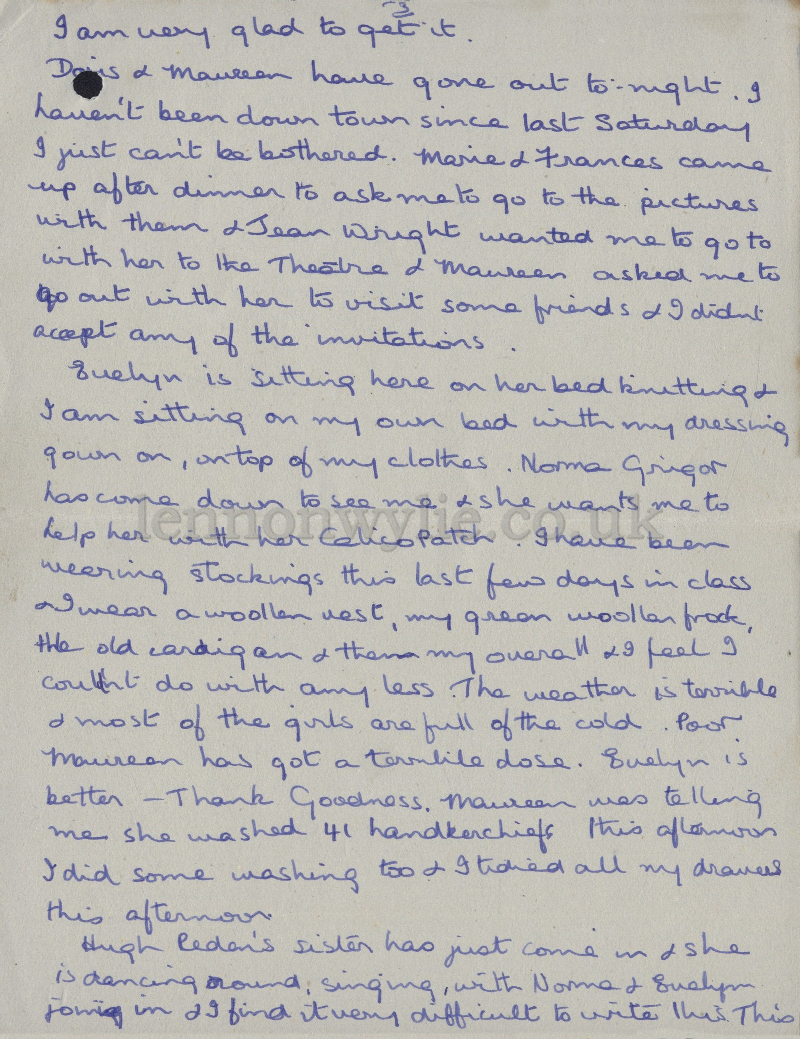 -3
I am very glad to get it.
Doris & Maureen have gone out to-night. I
haven't been down town since last Saturday
I just can't be bothered. Marie & Frances came
up after dinner to ask me to go to the pictures
with them & Jean Wright wanted me to go to
with her to the Theatre & Maureen asked me to
go out with her to visit some friends & I didn't
accept any of the invitations.
Evelyn is sitting here on her bed knitting &
I am sitting on my own bed with my dressing
gown on, on top of my clothes. Norma Grigor
has come down to see me & she wants me to
lennonwylie.co.uk
help her with her calico patch. I have been
wearing stockings this last few days in class
& I wear a woollen vest, my green woollen frock,
the old cardigan & then my overall & I feel I
couldn't do with any less. The weather is terrible
& most of the girls are full of the cold. Poor
Maureen has got a terrible dose. Evelyn is
better – Thank Goodness. Maureen was telling
me she washed 41 handkerchiefs this afternoon
I did some washing too & I tidied all my drawers
this afternoon.
Hugh Peden's sister has just come in & she
is dancing round, singing, with Norma & Evelyn
joining in & I find it very difficult to write this. This